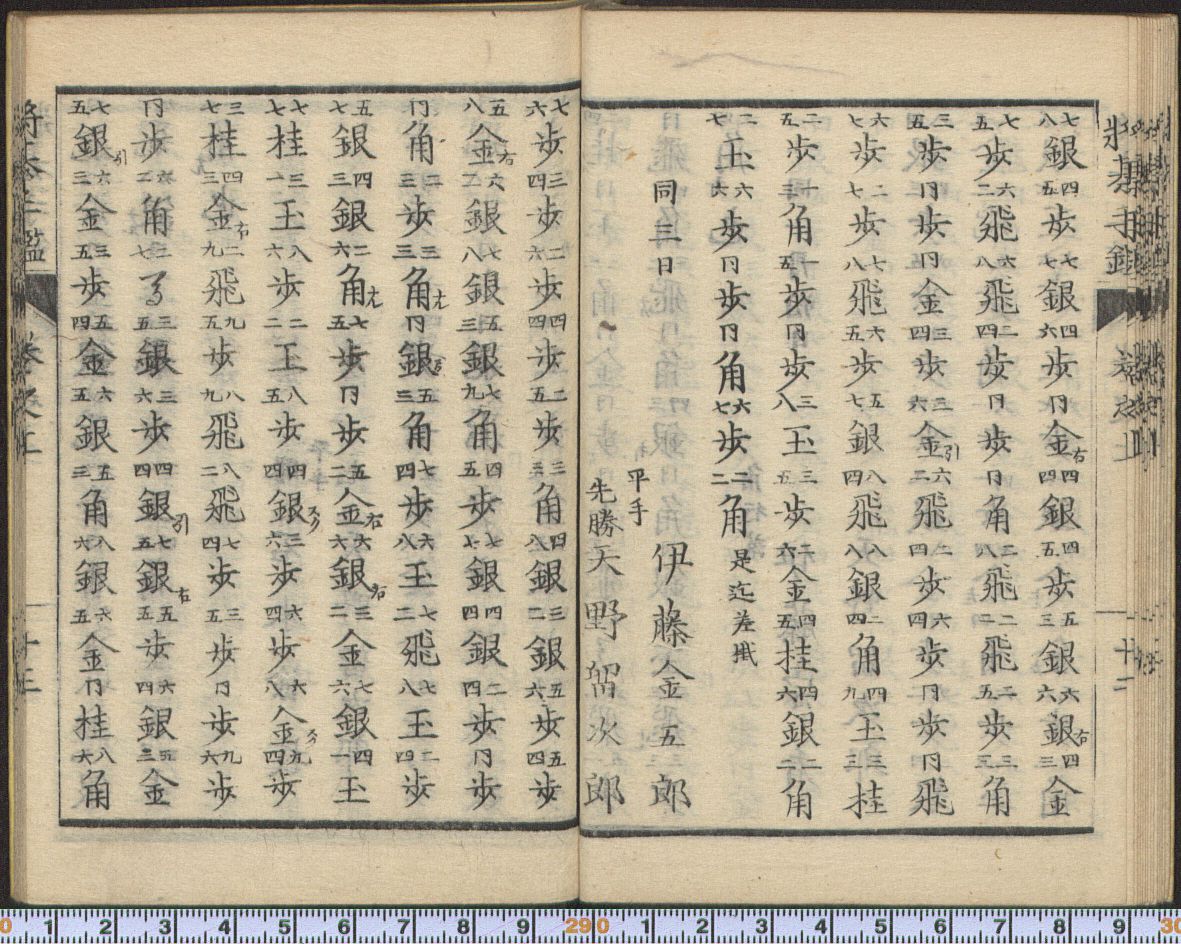 七八銀四五歩七七銀四六歩冂金右四四銀四五歩五三銀六六銀右四三金
七五歩六二飛六八飛二四歩冂歩冂角二八飛二二飛二五歩三三角
三五歩冂歩冂金三四歩三六金引六二飛二四歩六四歩冂歩冂飛
六七歩二七歩七八飛六五歩五七銀八四飛八八銀二四角四九玉三三桂
二五歩一三角一五歩冂歩三八玉三五歩二六金四五桂四六銀二二角
二七玉六六歩冂歩冂角六七歩二二角是迄差掛
同三日 平手 伊藤金五郎
先勝 天野留次郎
七六歩三四歩二六歩四四歩二五歩三三角四八銀三二銀五六歩五四歩
五八金右六二銀七八銀五三銀七九角四五歩七七銀四四銀二四歩冂歩
冂角二三歩三三角冂銀五三角七四歩六八玉七二飛七八玉二四歩
五七銀四三銀二六角七五歩冂歩五二金右六六銀右三二金七六銀四一玉
七七桂三一玉八六歩二二玉八五歩四四銀三六歩六四歩六八金九四歩
三七桂四三金右二九飛九五歩八九飛八二飛七四歩三五歩冂歩九六歩
冂歩六二角三五銀三六歩四四銀引七五銀右五五歩六四銀五三金
七五銀引六三金三五歩五四金六五銀五三角八六銀六五金冂桂八六角
将棊手鑑
十二